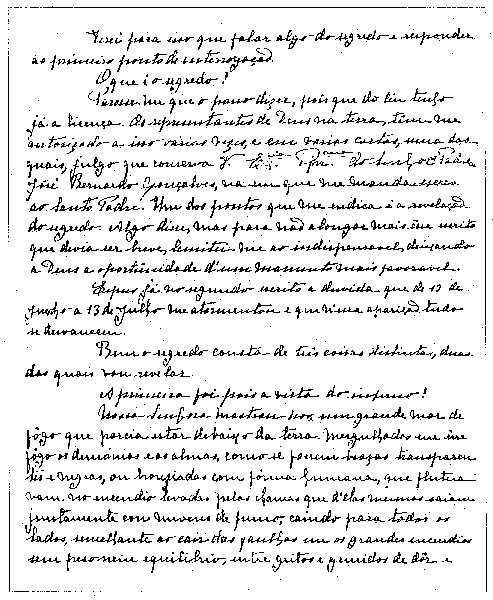 Terei para isso que falar algo do segredo e responder
ao primeiro ponto de interrogação.
O que é o segredo?
Parece-me que o posso dizer, pois que do Ceu tenho
já a licença. Os representantes de Deus na terra, têm-me
autorizado a isso várias vezes, e em várias cartas, uma das
quais, julgo que conserva V. Ex.cia Rev.ma do Senhor Padre
José Bernardo Gonçalves, na em que me manda escrever
ao Santo Padre. Um dos pontos que me indica é a revelação
do segredo. Algo disse, mas para não alongar mais esse escrito
que devia ser breve, limitei-me ao indispensavel, deixando
a Deus a oportunidade d'um momento mais favoravel.
Expus já no segundo escrito a duvida que de 13 de
Junho a 13 de Julho me atormentou e que n'essa aparição tudo
se desvaneceu.
Bem o segredo consta de três coisas distintas, duas
das quais vou revelar.
A primeira foi pois a vista do inferno!
Nossa Senhora mostrou-nos um grande mar de
fôgo que parcia estar debaixo da terra. Mergulhados em êsse
fôgo os demónios e as almas, como se fossem brasas transparen-
tes e negras, ou bronziadas com fórma humana, que flutua-
vam no incendio levadas pelas chamas que d'elas mesmas saiam
juntamente com nuvens de fumo, caindo para todos os
lados, semelhante ao cair das faulhas em os grandes incendios
sem peso nem equilibrio, entre gritos e gemidos de dôr e